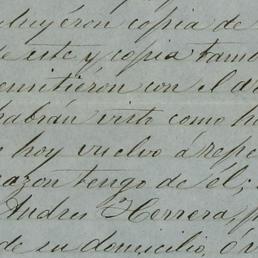 yéron copia de
de este y copia tam
emitiéron con el d
habrán visto como h
hoy vuelvo á repe
razon tengo de él;
Andres Herrera, p
de su domicilio, ó